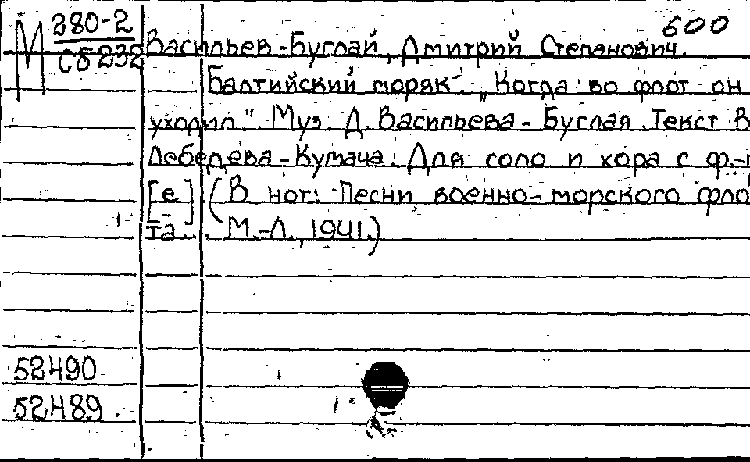 600
М 280-2
Сб232
Васильев-Буглай, Дмитрий Степанович.
Балтийский моряк. „Когда во флот он
уходил". Муз. Д. Васильева-Буглая. Текст В.
Лебедева-Кумача. Для соло и хора с ф.-
[е] (В нот: Песни военно-морского фло
та. М.-Л., 1941.)
52490
52489.